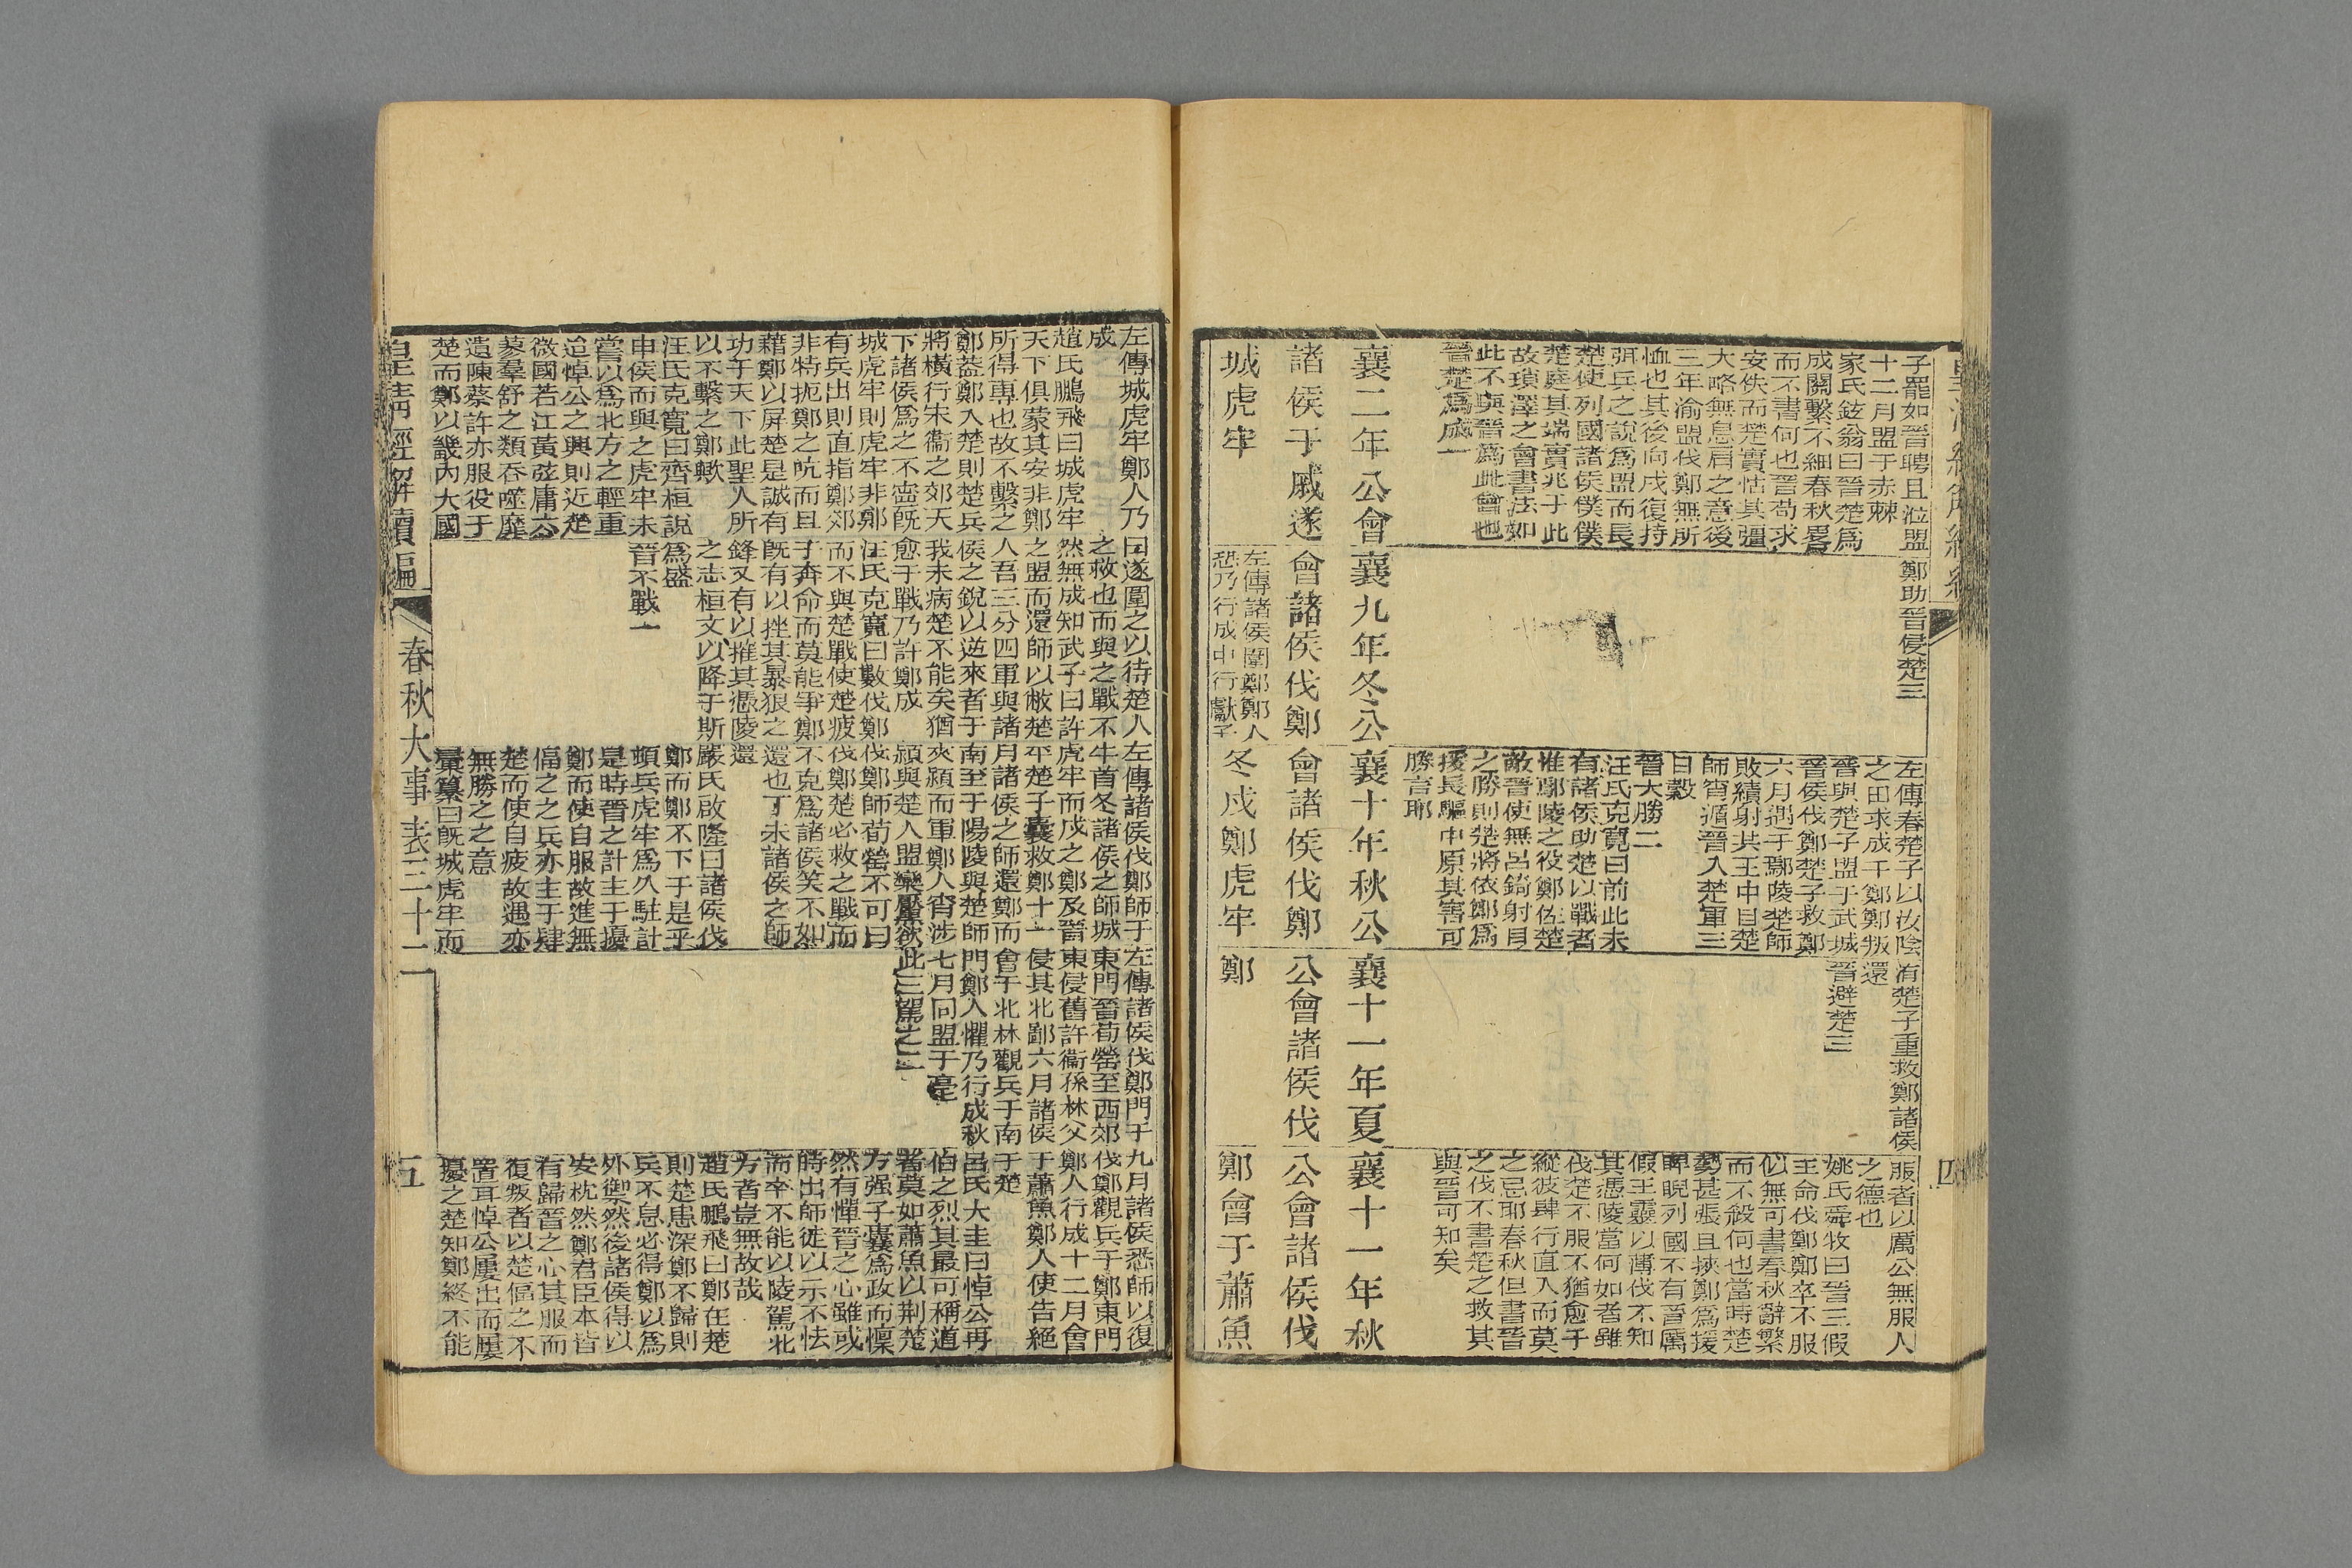 子罷如晉聘且涖盟
十二月盟于赤棘
家氏鉉翁曰晉楚爲
成關繫不細春秋畧
而不書何也晉苟求
安佚而楚實怙其彊
大略無息肩之意後
三年渝盟伐鄭無所
恤也其後向戌復持
弭兵之說爲盟而長
楚使列國諸侯僕僕
楚庭其端實兆于此
故瑣澤之會書法如
此不與晉爲此會也
晉楚爲成一
鄭助晉侵楚三
左傳春楚子以汝陰
之田求成于鄭鄭叛
晉與楚子盟于武城
晉侯伐鄭楚子救鄭
六月遇于鄢陵楚師
敗績射共王中目楚
師宵遁晉入楚軍三
日穀
晉大勝二
汪氏克寬曰前此未
有諸侯助楚以戰者
惟鄢陵之役鄭佐楚
敵晉使無呂錡射目
之勝則楚將依鄭爲
援長驅中原其害可
勝言耶
有楚子重救鄭諸侯
還
晉避楚三
服者以厲公無服人
之德也
姚氏舜牧曰晉三假
王命伐鄭鄭卒不服
似無可書春秋辭繁
而不殺何也當時楚
勢甚張且挾鄭爲援
睥睨列國不有晉厲
假王靈以薄伐不知
其憑陵當何如者雖
伐楚不服不猶愈于
縱彼肆行直入而莫
之忌耶春秋但書晉
之伐不書楚之救其
與晉可知矣
襄二年公會
諸侯于戚遂
城虎牢
襄九年冬公
會諸侯伐鄭
左傳諸侯圍鄭鄭人
恐乃行成中行獻子
襄十年秋公
會諸侯伐鄭
冬戍鄭虎牢
襄十一年夏
公會諸侯伐
鄭
襄十一年秋
公會諸侯伐
鄭會于蕭魚
左傳城虎牢鄭人乃
成
趙氏鵬飛曰城虎牢
天下俱蒙其安非鄭
所得專也故不繫之
鄭蓋鄭入楚則楚兵
將橫行宋衞之郊天
下諸侯爲之不寧旣
城虎牢則虎牢非鄭
有兵出則直指鄭郊
非特扼鄭之吭而且
藉鄭以屏楚是誠有
功于天下此聖人所
以不繫之鄭歟
汪氏克寬曰齊桓說
申侯而與之虎牢未
嘗以爲北方之輕重
迨悼公之興則近楚
微國若江黃弦庸六
蓼羣舒之類吞噬靡
遺陳蔡許亦服役于
楚而鄭以畿內大國
曰遂圍之以待楚人
之救也而與之戰不
然無成知武子曰許
之盟而還師以敝楚
人吾三分四軍與諸
侯之銳以逆來者于
我未病楚不能矣猶
愈于戰乃許鄭成
汪氏克寬曰數伐鄭
而不與楚戰使楚疲
于奔命而莫能爭鄭
旣有以挫其暴狠之
鋒又有以摧其憑陵
之志桓文以降于斯
爲盛
晉不戰一
左傳諸侯伐鄭師于
牛首冬諸侯之師城
虎牢而戍之鄭及晉
平楚子囊救鄭十一
月諸侯之師還鄭而
南至于陽陵與楚師
夾潁而軍鄭人宵涉
潁與楚人盟欒黶欲
伐鄭師荀罃不可曰
伐鄭楚必救之戰而
不克爲諸侯笑不如
還也丁未諸侯之師
還
嚴氏啟隆曰諸侯伐
鄭而鄭不下于是乎
頓兵虎牢爲久駐計
是時晉之計主于擾
鄭而使自服故進無
偪之之兵亦主于肄
楚而使自疲故遇亦
無勝之之意
彙纂曰旣城虎牢而
左傳諸侯伐鄭門于
東門晉荀罃至西郊
東侵舊許衞孫林父
侵其北鄙六月諸侯
會于北林觀兵于南
門鄭人懼乃行成秋
七月同盟于亳
此三駕之二
九月諸侯悉師以復
伐鄭觀兵于鄭東門
鄭人行成十二月會
于蕭魚鄭人使告絕
于楚
呂氏大圭曰悼公再
伯之烈其最可稱道
者莫如蕭魚以荆楚
方强子囊爲政而懍
然有憚晉之心雖或
時出師徒以示不怯
而卒不能以陵駕北
方者豈無故哉
趙氏鵬飛曰鄭在楚
則楚患深鄭不歸則
兵不息必得鄭以爲
外禦然後諸侯得以
安枕然鄭君臣本皆
有歸晉之心其服而
復叛者以楚偪之不
置耳悼公屢出而屢
擾之楚知鄭終不能
皇清經解續編
春秋大事表三十二
五